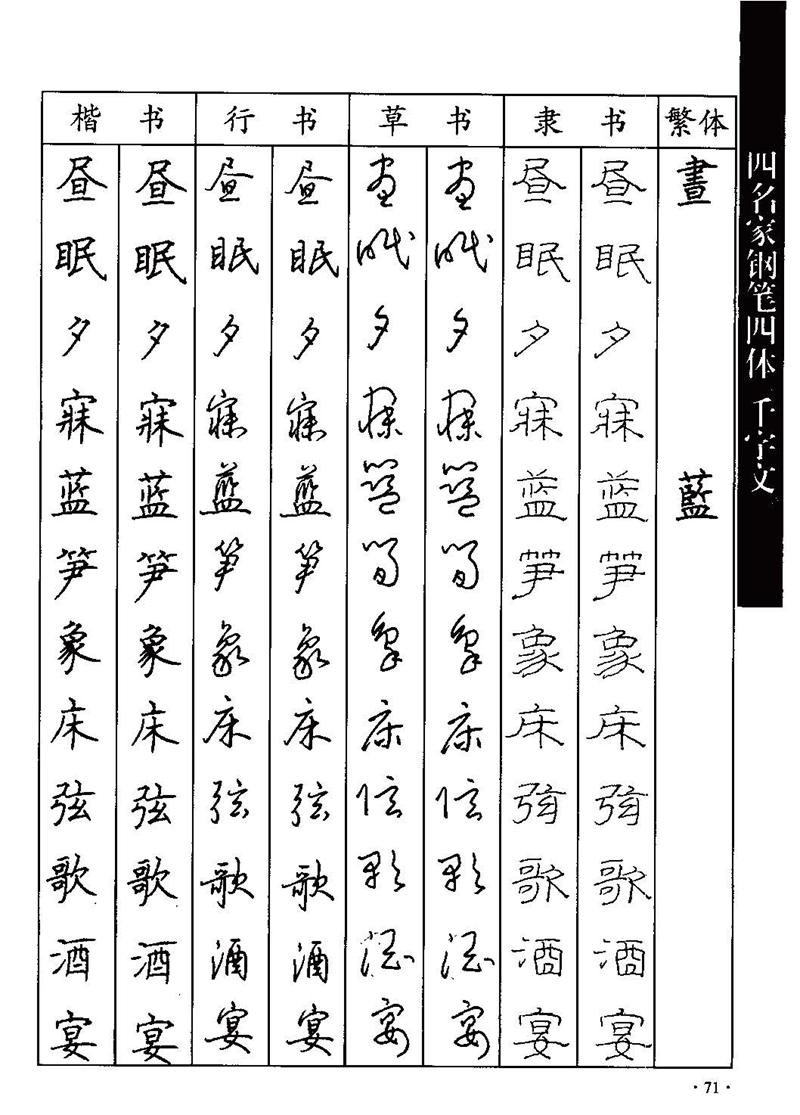 楷书 行书 草书 隶书 繁体
昼 昼 昼 昼 昼 昼 昼 昼 晝
眠 眠 眠 眠 眠 眠 眠 眠
夕 夕 夕 夕 夕 夕 夕 夕
寐 寐 寐 寐 寐 寐 寐 寐
蓝 蓝 蓝 蓝 蓝 蓝 蓝 蓝 藍
笋 笋 笋 笋 笋 笋 笋 笋
象 象 象 象 象 象 象 象
床 床 床 床 床 床 床 床
弦 弦 弦 弦 弦 弦 弦 弦
歌 歌 歌 歌 歌 歌 歌 歌
酒 酒 酒 酒 酒 酒 酒 酒
宴 宴 宴 宴 宴 宴 宴 宴
四名家钢笔四体 千字文
·71·